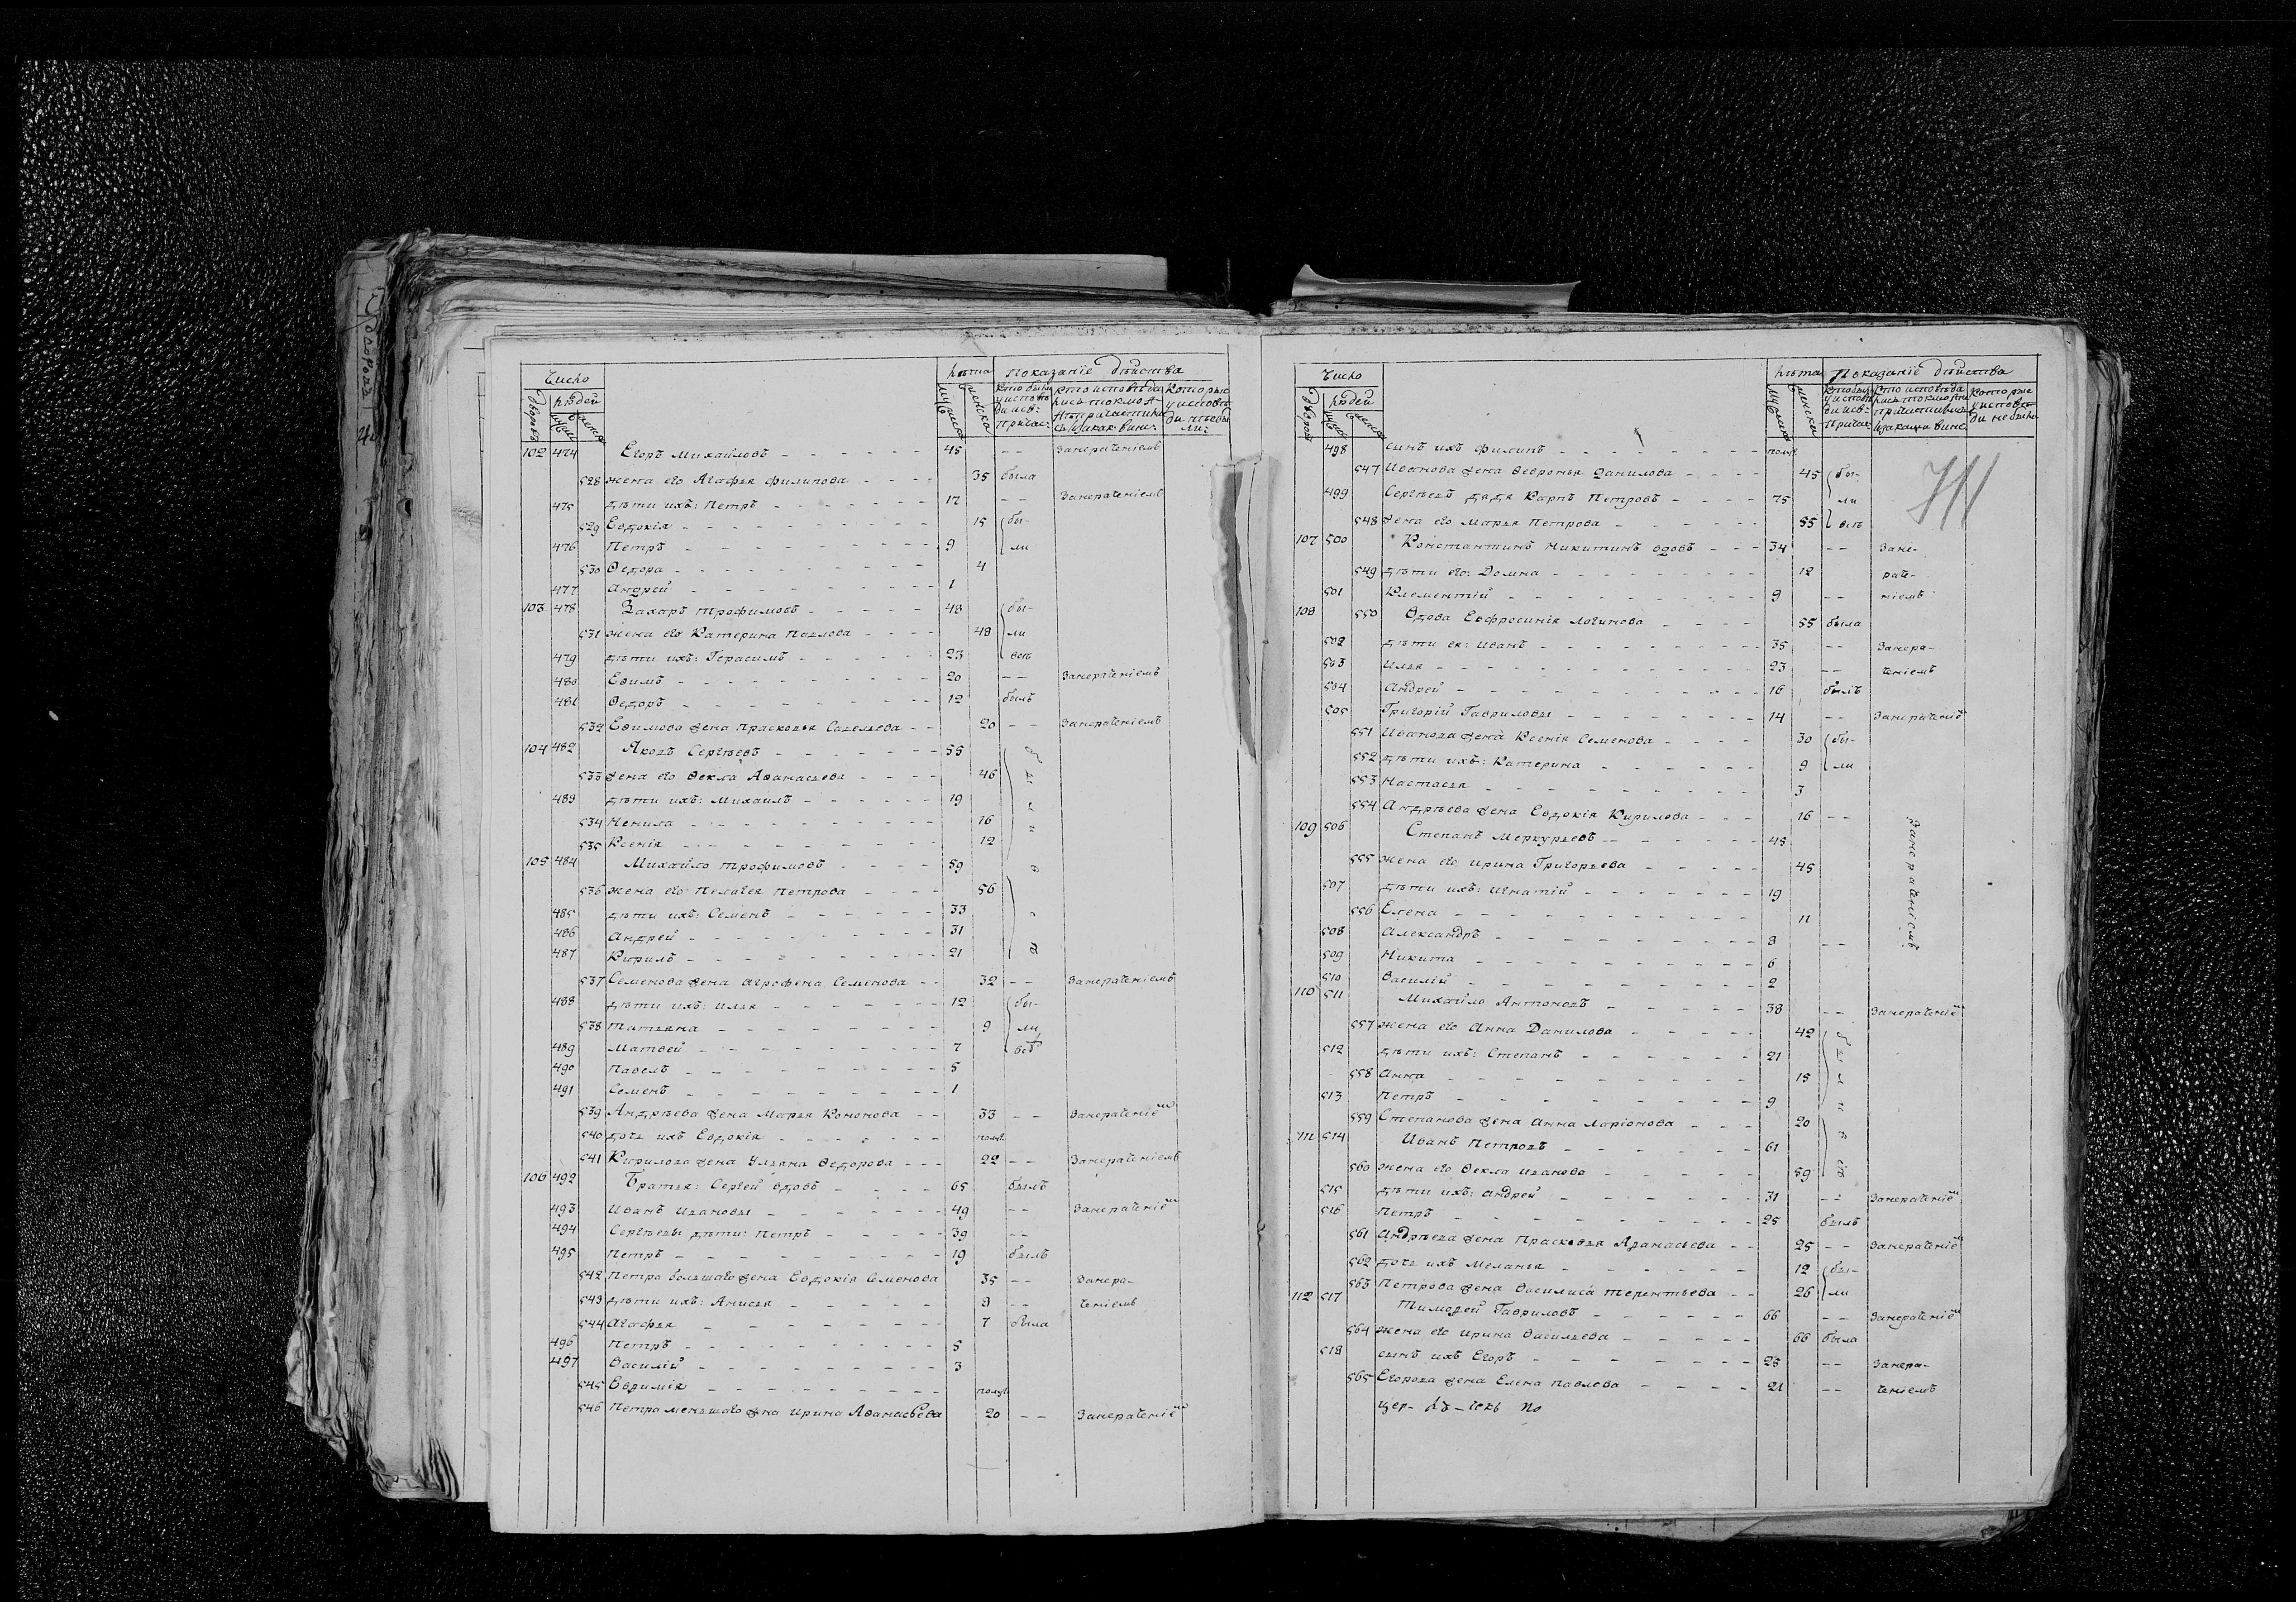 Число
Лѣта
Показанїе дѣйства
Дворовъ
людей
муска
женска
102 474 Егоръ Михайловъ 45 – – Занераченїемъ
528 жена его Агафья Филипова 35 была
475 дѣти ихъ: Петръ 17 – – Занераченїемъ
529 Евдокїя 15 бы-
476 Петръ 9 ли
530 Ѳедора 4
477 Андрей 1
103 478 Захаръ Трофимовъ 48 бы-
531 жена его Катерина Павлова 48 ли
479 дѣти ихъ: Герасимъ 23 всѣ
480 Ефимъ 20 – – Занераченїемъ
481 Ѳедоръ 12 былъ
532 Ефимова жена Прасковья Савельева 20 – – Занераченїемъ
104 482 Яковъ Сергѣевъ 55
533 жена его Ѳекла Афанасьева 46
483 дѣти ихъ: Михаилъ 19
534 Ненила 16
535 Ксенїя 12
105 484 Михайло Трофимовъ 59
536 жена его Пелагея Петрова 56
485 дѣти ихъ: Семенъ 33
486 Андрей 31
487 Кирилъ 21
были всѣ
537 Семенова жена Агрофена Семенова 32 – – Занераченїемъ
488 дѣти ихъ: Илья 12 бы-
538 Татьяна 9 ли
489 Матвей 7 всѣ
490 Павелъ 5
491 Семенъ 1
539 Андрѣева жена Марья Кононова 33 – – Занераченїемъ
540 дочь ихъ Евдокїя полуг
541 Кирилова жена Ульяна Ѳедорова 22 – – Занераченїемъ
106 492 Братья: Сергей вдовъ 65 былъ
493 Иванъ Ивановы 49 – – Занераченїемъ
494 Сергѣевы дѣти: Петръ 39 – –
495 Петръ 19 былъ
542 Петра большаго жена Евдокїя Семенова 35 – – Занера-
543 дѣти ихъ: Анисья 8 – – ченїемъ
544 Агафья 7 была
496 Петръ 5
497 Василїй 3
545 Евфимїя полуг
546 Петра меньшаго жена Ирина Афанасьева 20 – – Занераченїемъ
Число
Лѣта
Показанїе дѣйства
Дворовъ
людей
498 сынъ ихъ Филипъ полуг
547 Иванова жена Февронья Данилова 45 бы-
499 Сергѣевъ дядя Карпъ Петровъ 75 ли
548 жена его Марья Петрова 55 всѣ
107 500 Константинъ Никитинъ вдовъ 34 – – Зане-
549 дѣти его: Домна 12 раче-
501 Клементїй 9 – – нїемъ
108 550 Вдова Евфросинїя Логинова 55 была
502 дѣти ея: Иванъ 35 – – Занера-
503 Илья 23 – – ченїемъ
504 Андрей 16 былъ
505 Григорїй Гавриловы 14 – – Занераченїемъ
551 Иванова жена Ксенїя Семенова 30 бы-
552 дѣти ихъ: Катерина 9 ли
553 Настасья 3
554 Андрѣева жена Евдокїя Кирилова 16 – –
109 506 Степанъ Меркурьевъ 45
555 жена его Ирина Григорьева 45
507 дѣти ихъ: Игнатїй 19
556 Елена 11
508 Александръ 8 – –
Занераченїемъ
509 Никита 6
510 Василїй 2
110 511 Михайло Антоновъ 38 – – Занераченїемъ
557 жена его Анна Данилова 42
512 дѣти ихъ: Степанъ 21
558 Анна 15
513 Петръ 9
559 Степанова жена Анна Ларїонова 20
111 514 Иванъ Петровъ 61
560 жена его Ѳекла Иванова 59
были всѣ
515 дѣти ихъ: Андрей 31 – – Занераченїемъ
516 Петръ 25 былъ
561 Андрѣева жена Прасковья Афанасьева 25 – – Занераченїемъ
562 дочь ихъ Меланья 12 бы-
563 Петрова жена Василиса Терентьева 26 ли
112 517 Тимофей Гавриловъ 66 – – Занераченїемъ
564 жена его Ирина Васильева 66 была
518 сынъ ихъ Егоръ 25 – – Занера-
565 Егорова жена Елена Павлова 21 – – ченїемъ